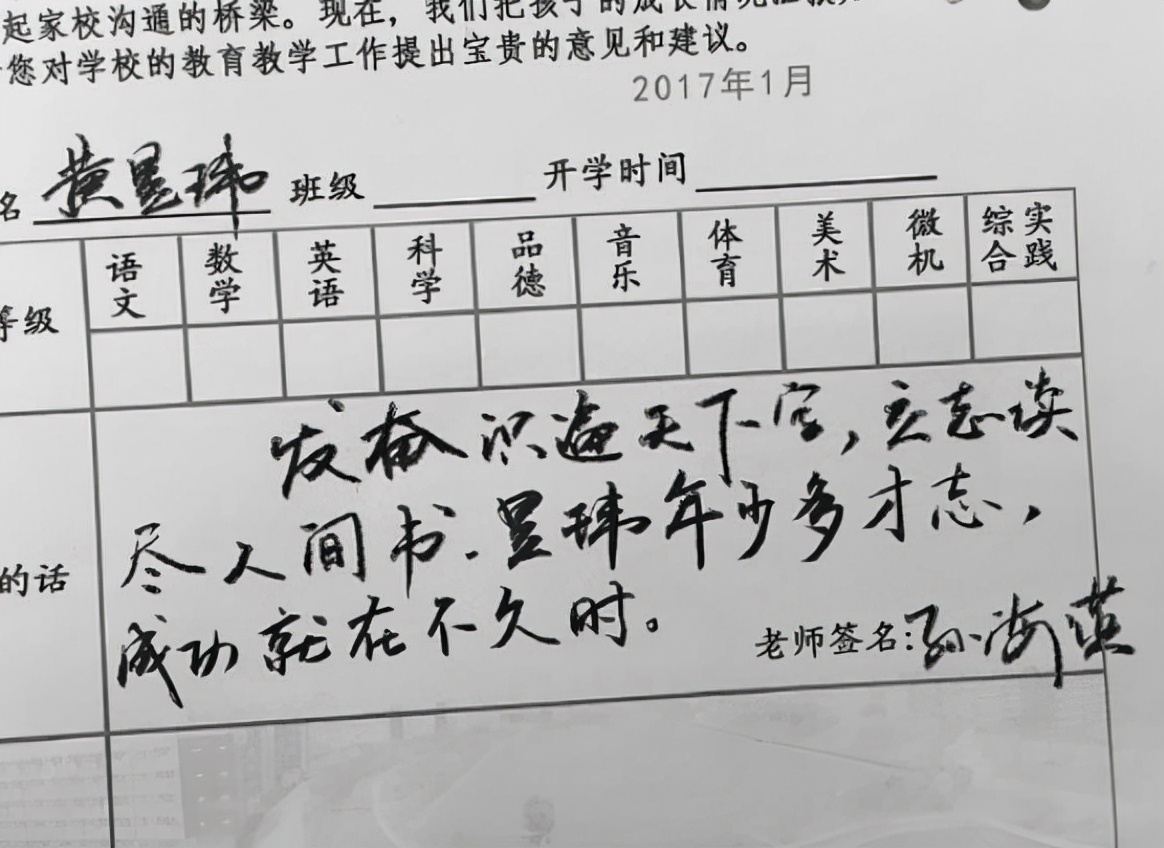 起家校沟通的桥梁。现在，我们把孩子的成长情况汇报
您对学校的教育教学工作提出宝贵的意见和建议。
2017年1月
名 黄昱玮 班级 开学时间
语文 数学 英语 科学 品德 音乐 体育 美术 微机 综合实践
等级
发奋识遍天下字，立志读
尽人间书。昱玮年少多才志，
的话
成功就在不久时。
老师签名：孙海英